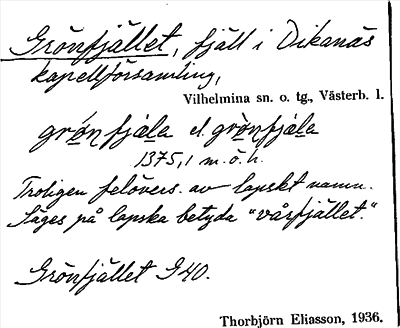 Grönfjället, fjäll i Dikanäs
kapellförsamling,
Vilhelmina sn. o. tg., Västerb. l.
grö̀n fjä̀la el. grö̀nfjä̀la
1375,1 m.ö.h.
Troligen felövers. av lapskt namn.
Säges på lapska betyda "vårfjället."
Grönfjället G40.
Thorbjörn Eliasson, 1936.